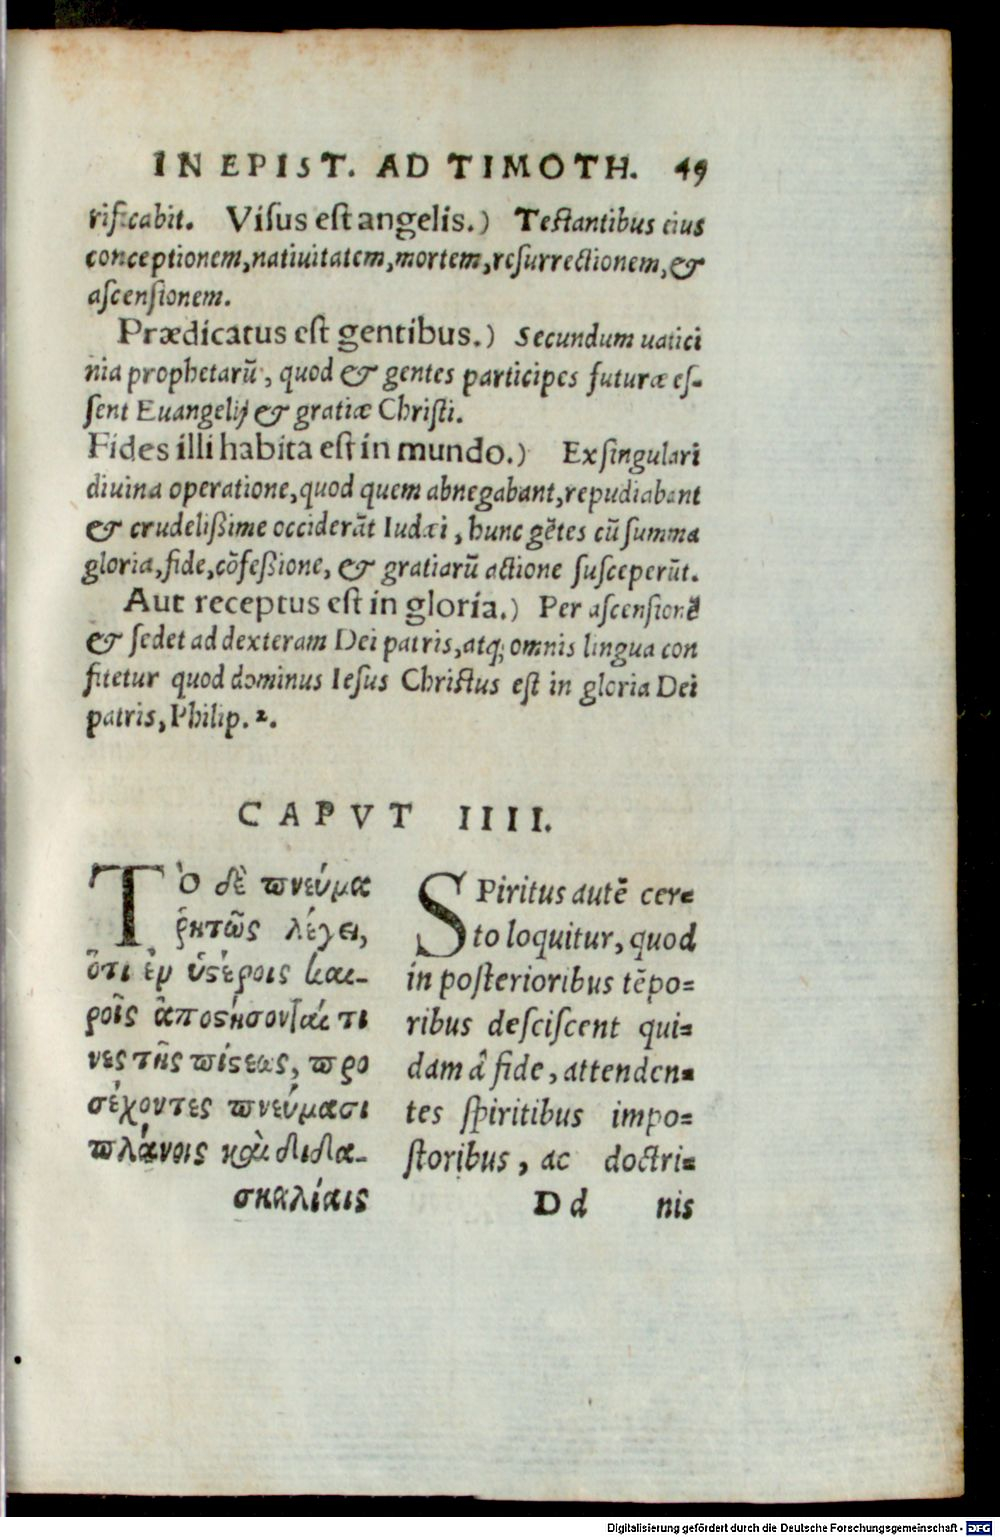 IN EPIST. AD TIMOTH. 49
rificabit. Visus est angelis.) Testantibus eius
conceptionem, natiuitatem, mortem, resurrectionem, &
ascensionem.
Prædicatus est gentibus.) Secundum uatici
nia prophetarū, quod & gentes participes futuræ es-
sent Euangelij & gratiæ Christi.
Fides illi habita est in mundo.) Ex singulari
diuina operatione, quod quem abnegabant, repudiabant
& crudelißime occiderāt Iudæi, hunc gētes cū summa
gloria, fide, cōfeßione, & gratiarū actione susceperūt.
Aut receptus est in gloria.) Per ascensionē
& sedet ad dexteram Dei patris, atq; omnis lingua con
fitetur quod dominus Iesus Christus est in gloria Dei
patris, Philip. 2.
CAPVT IIII.
Τὸ δὲ πνεύμα
ῥητῶς λέγει,
ὅτι ἐν ὑϛέροις και-
ροῖς ἀποϛήσονται τι
νες τῆς πίϛεως, προ
σέχοντες πνεύμασι
πλάνοις καὶ διδα-
σκαλίαις
SPiritus autē cer=
to loquitur, quod
in posterioribus tēpo=
ribus desciscent qui=
dam â fide, attenden=
tes spiritibus impo=
storibus, ac doctri=
Dd nis
Digitalisierung gefördert durch die Deutsche Forschungsgemeinschaft - DFG